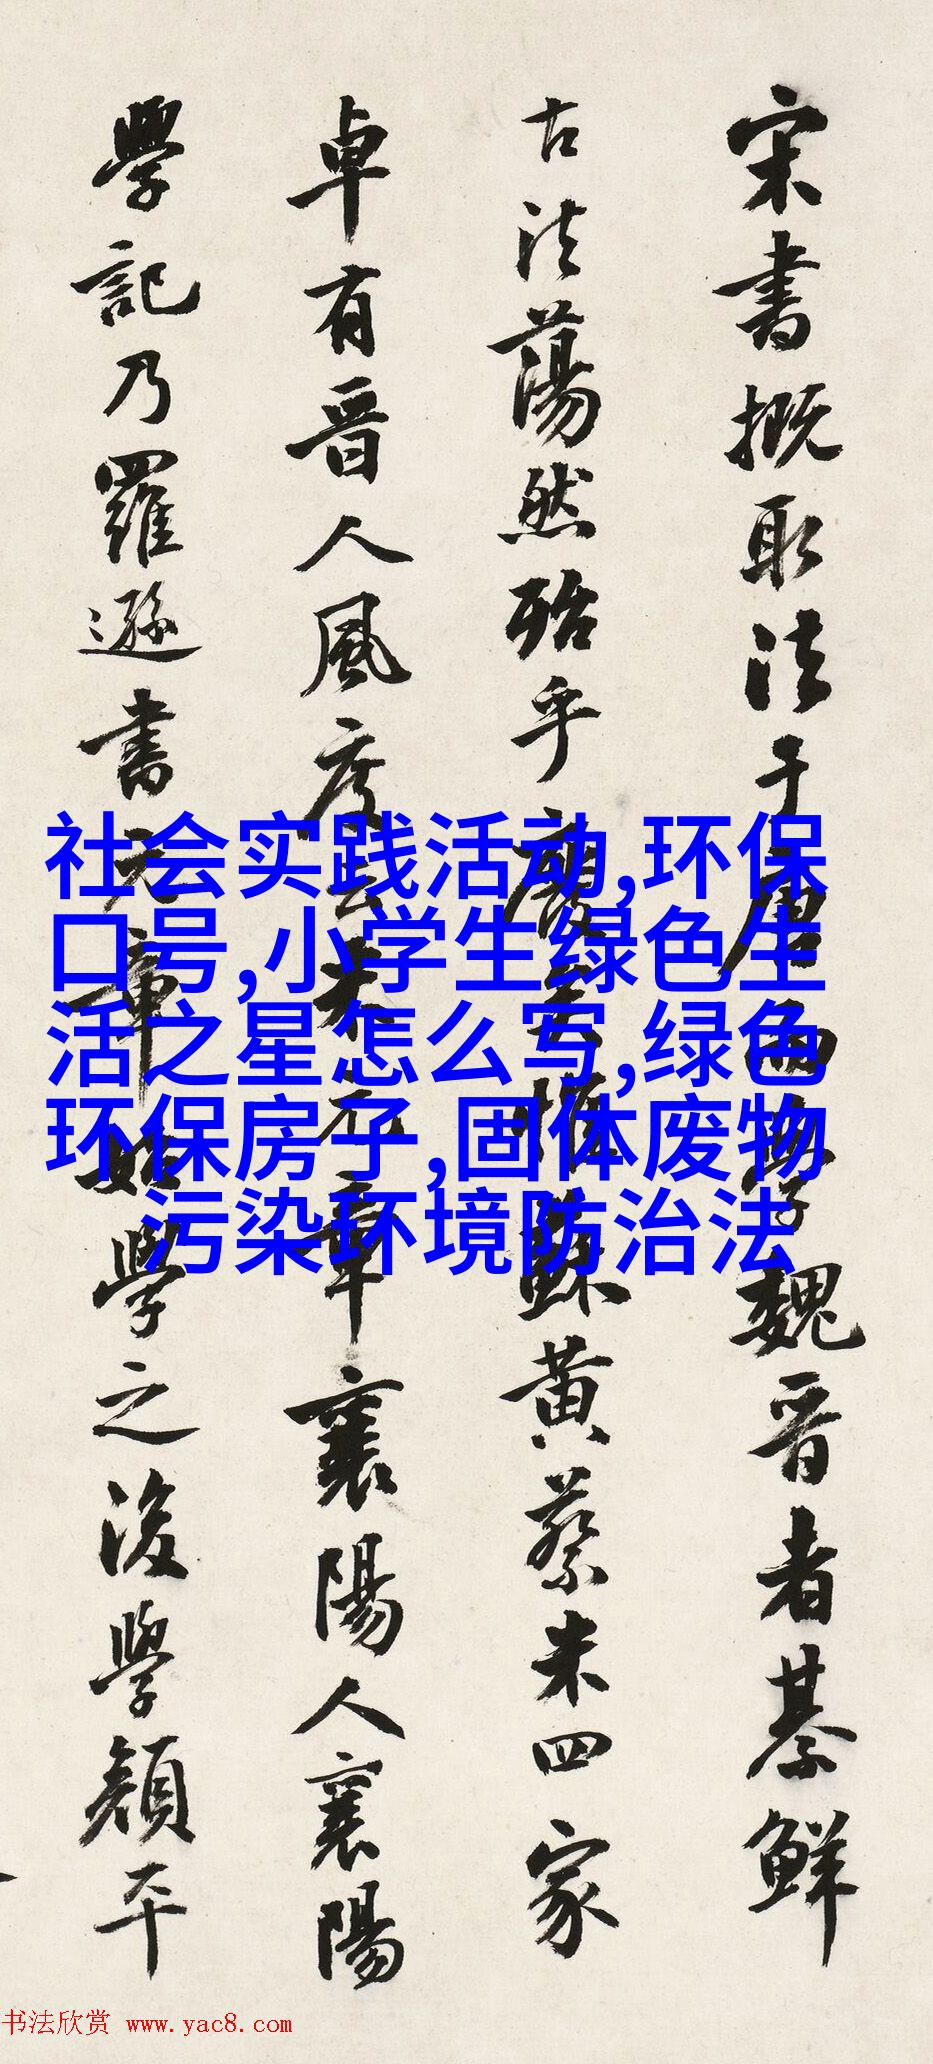 宋書概取法于唐而學魏晋者綦鮮
古法蕩然殆乎廢矣惟蘇黄蔡米四家
卓有晋人風度云米元章襄陽人襄陽
學記乃羅遜書元章始學之後學顔平
社会实践活动,环保
口号,小学生绿色生
活之星怎么写,绿色
环保房子,固体废物
污染环境防治法
书法欣赏 www.yac8.com